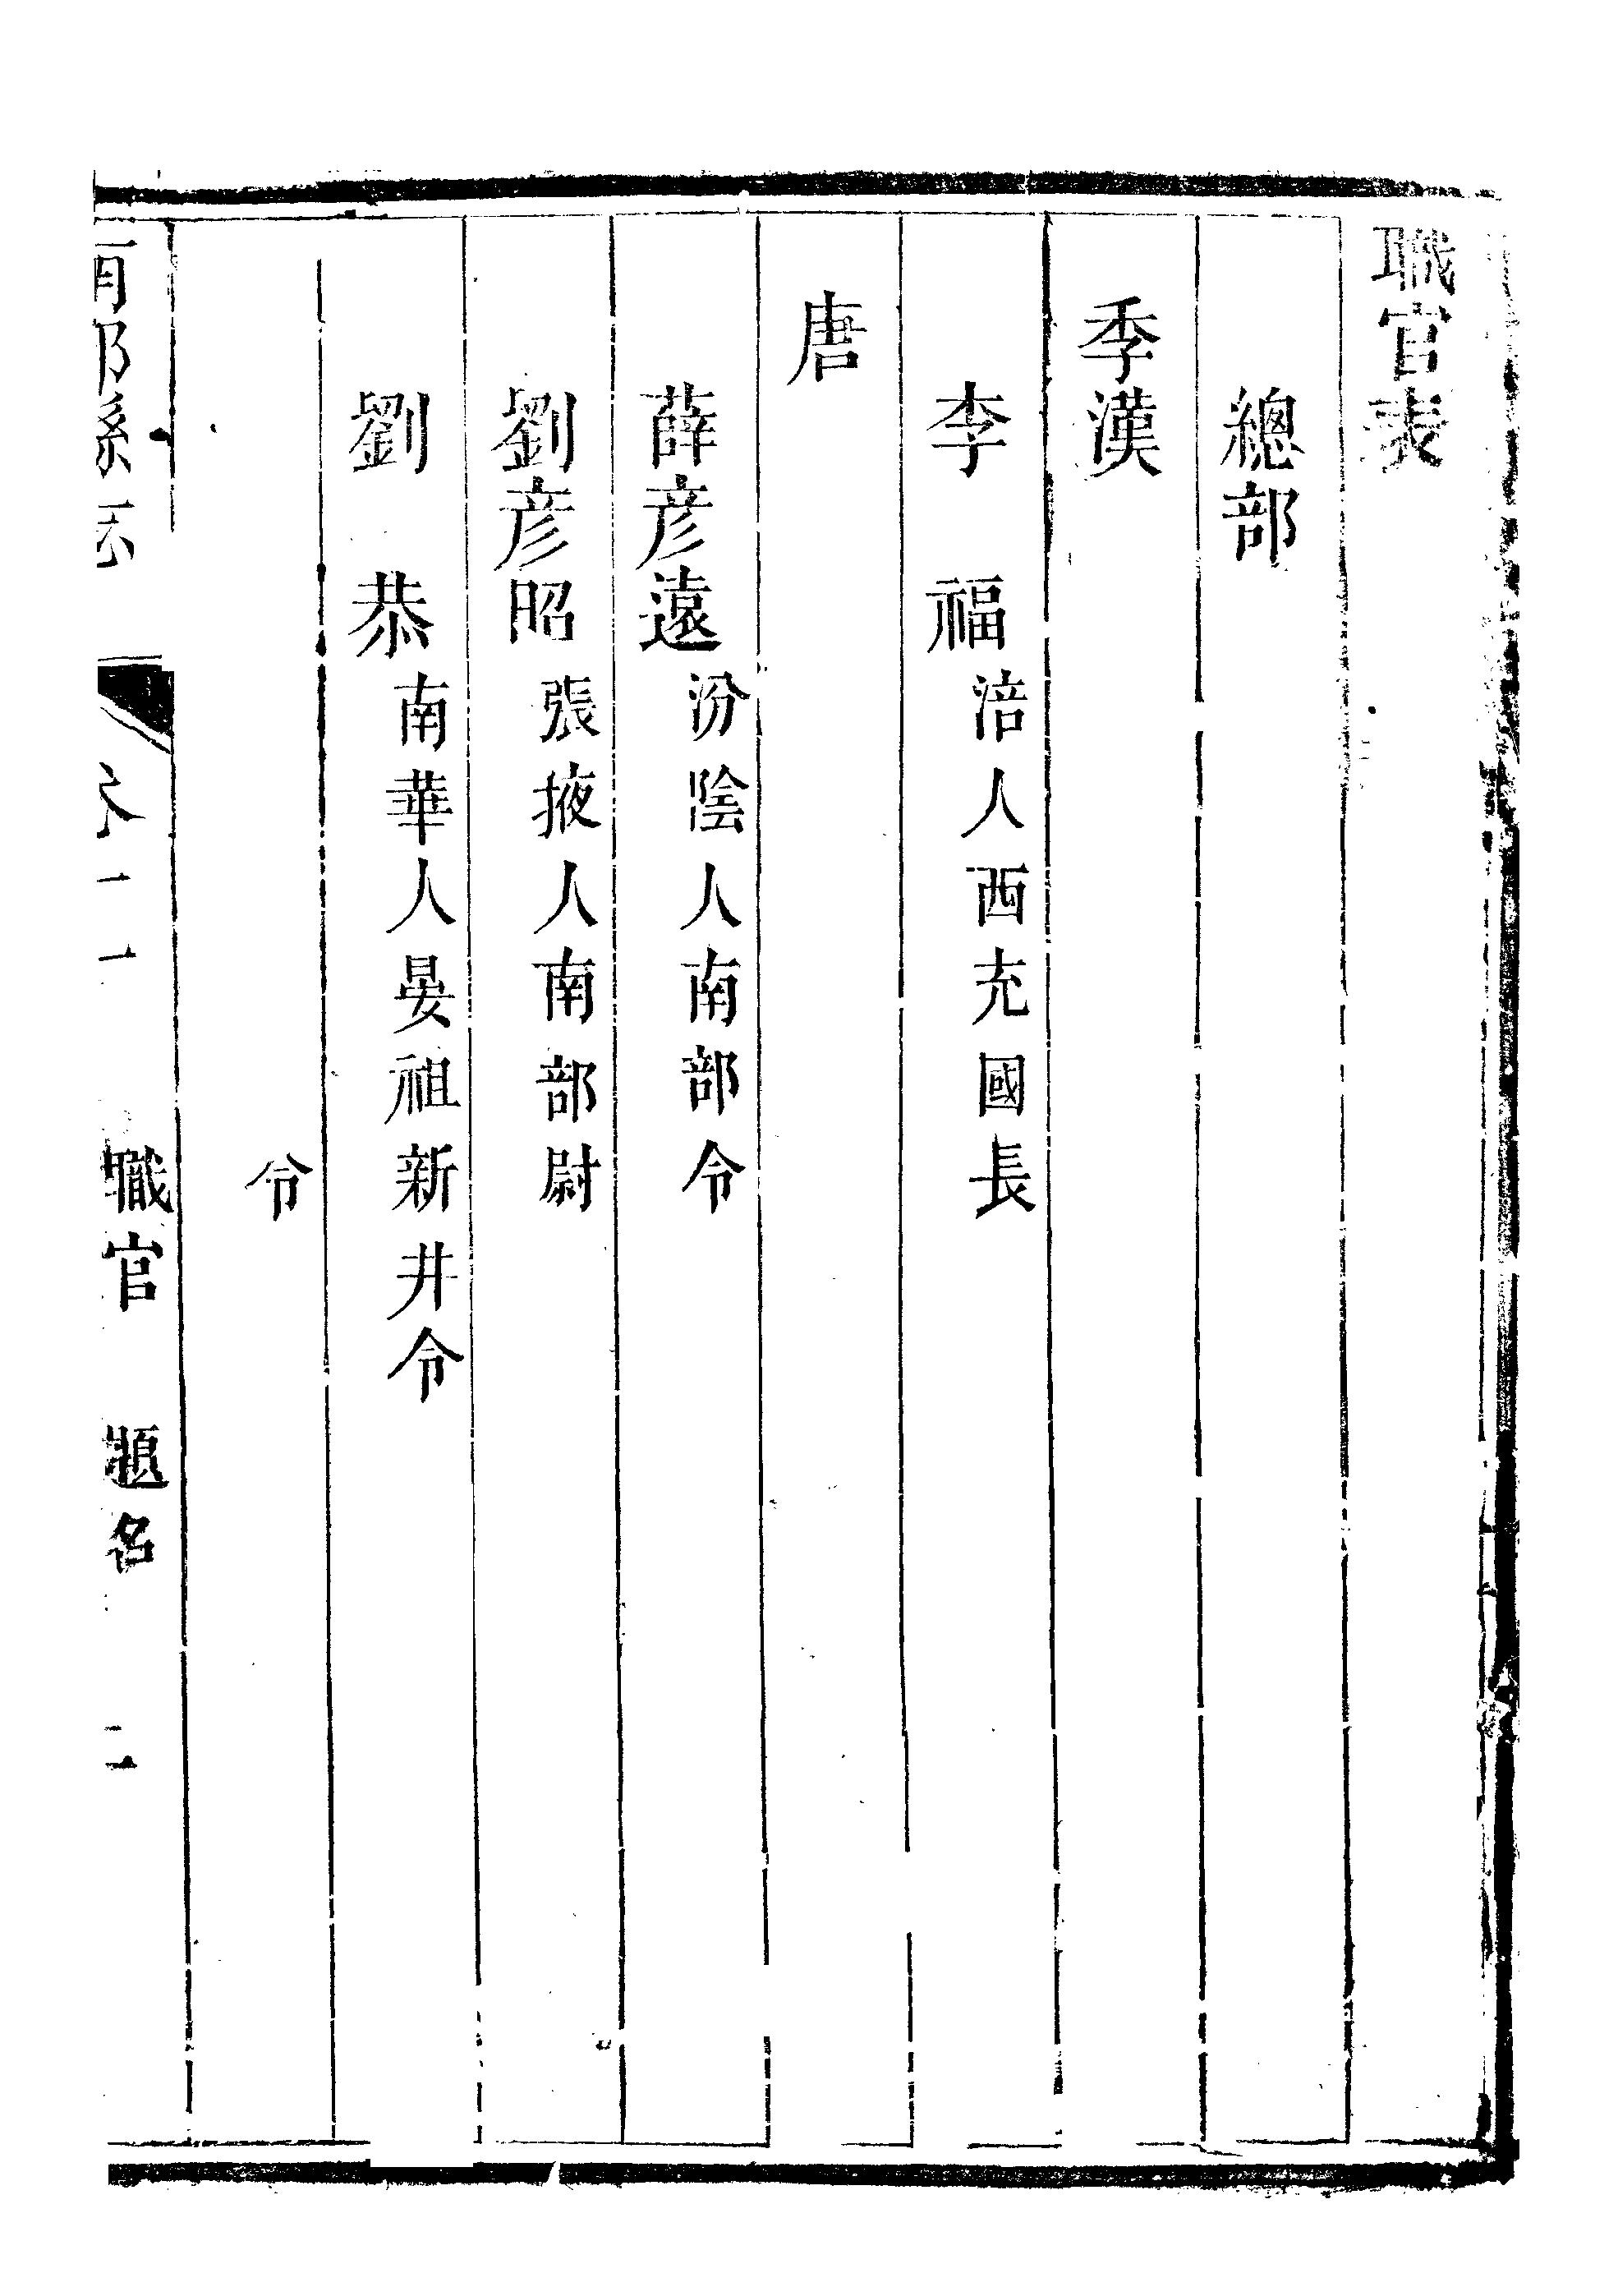 職官表
總部
季漢
李　福涪人西充國長
唐
薛彦遠汾陰人南部令
劉彦昭張掖人南部尉
劉　恭南華人晏祖新井令
令
南部縣志　卷十一　職官　題名　二